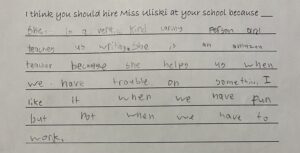 I think you should hire Miss Uliski at your school because __
She is a very kind caring person and
teacher us writing. She is an amazon
teacher because she helps us when
we have trouble on something I
like it when we have fun
but not when we have to
work.